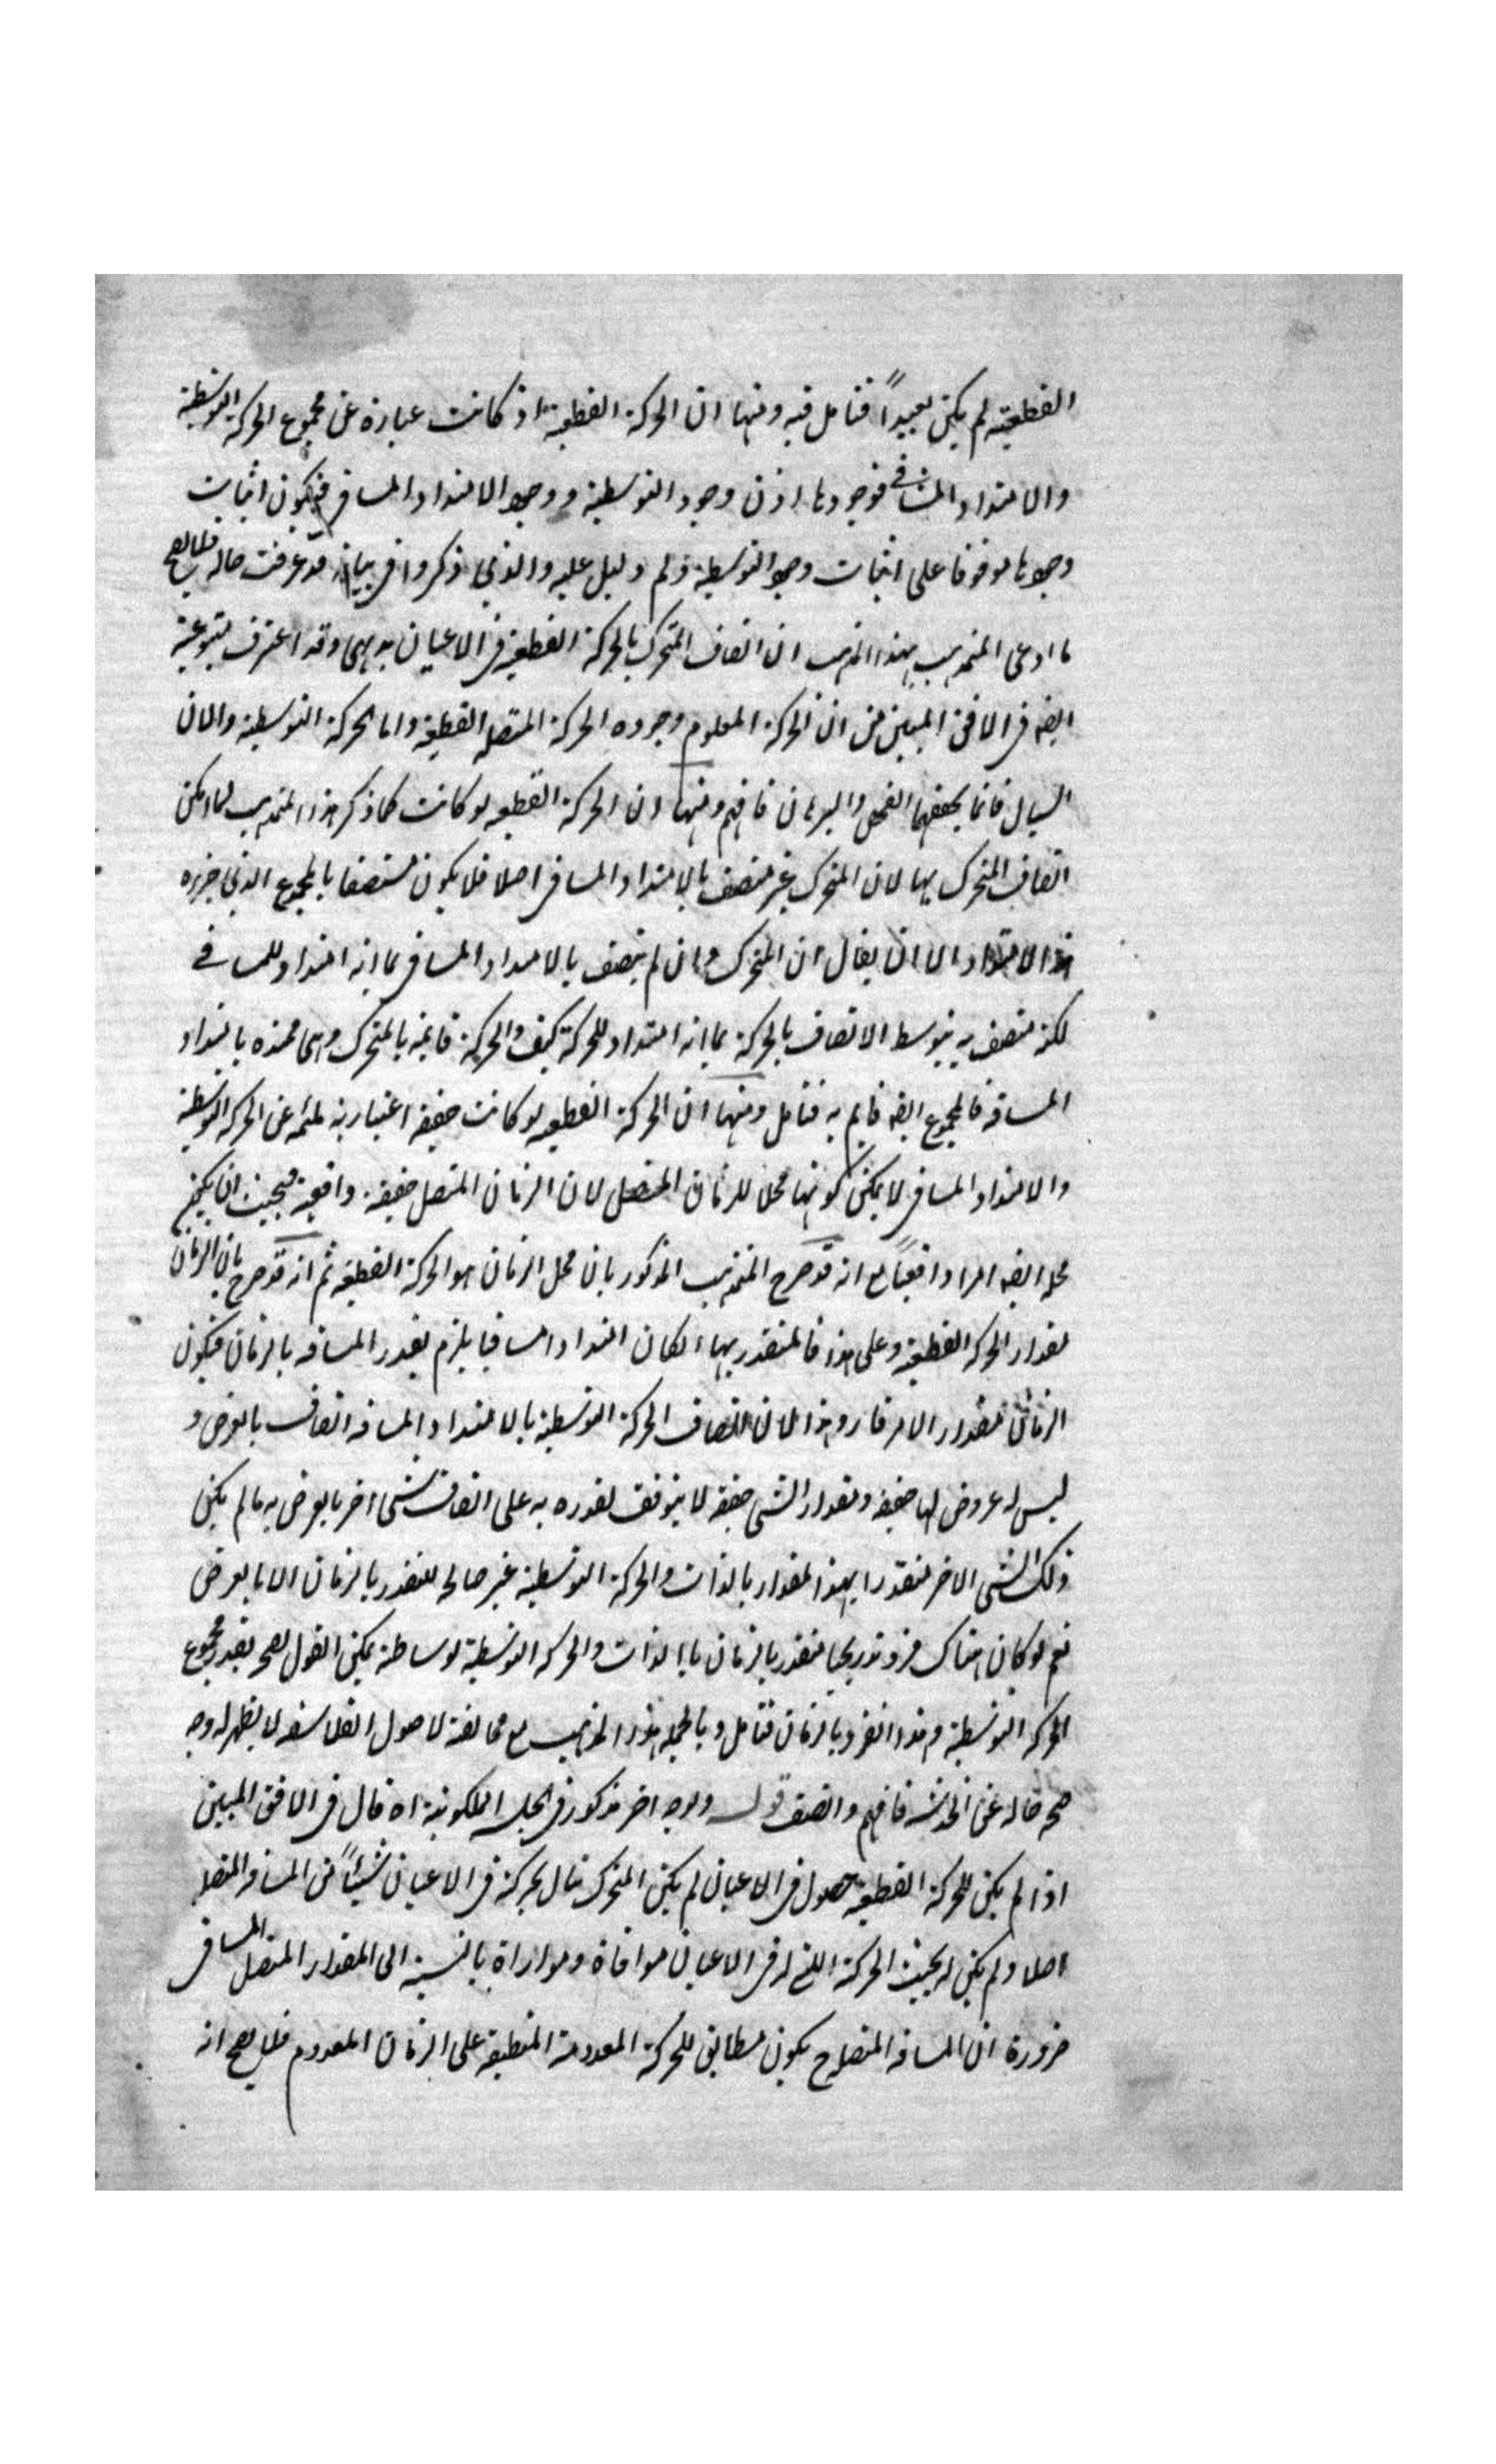 القطعية لم يكن بعيداً فتامل فيه ومنها ان الحركة القطعية اذ كانت عبارة عن مجموع الحركة التوسطية
والامتداد المسافى فوجودها اذن وجود التوسطية ووجود الامتداد المسافى فيكون اثبات
وجودها موقوفا على اثبات وجود التوسطية ولم دليل عليه والذى ذكروا فى بيانه قد عرفت حاله فلا يصح
ما ادعى المتمذهب بهذا المذهب ان اتصاف المتحرك بالحركة القطعية فى الاعيان بديهى وقد اعترف متبوعه
ايضه فى الافق المبين من ان الحركة المعلوم وجوده الحركة المتصلة القطعية واما الحركة التوسطية والان
السيال فانما يحققهما الفحص والبرهان فافهم ومنها ان الحركة القطعيه لو كانت كما ذكر هذا المتمذهب لما امكن
اتصاف المتحرك بها لان المتحرك غير متصف بالامتداد المسافى اصلا فلا يكون متصفا بالمجموع الذى جزءه
هذا الامتداد الا ان يقال ان المتحرك وان لم يتصف بالامتداد المسافى بما انه امتداد للمسافة
لكنه متصف به بتوسط الاتصاف بالحركة بما انه امتداد للحركة كيف والحركة قايمة بالمتحرك وهى ممتده بامتداد
المسافه فالمجموع ايضه قايم به فتامل ومنها ان الحركة القطعيه لو كانت حقيقة اعتبارية ملتئمه عن الحركه التوسطية
والامتداد المسافى لا يمكن كونها محلا للزمان المتصل لان الزمان المتصل حقيقة واقعية فيجب ان يكون
محله ايضه امرا واقعياً مع انه قد صرح المتمذهب المذكور بان محل الزمان هو الحركة القطعية ثم انه قد صرح بان الزمان
مقدار الحركه القطعية وعلى هذا فالمتقدر بها الكان امتدادا مسافيا يلزم تقدر المسافه بالزمان فيكون
الزمان مقدار الامر قار وهذا لان اتصاف الحركة التوسطية بالامتداد المسافه اتصاف بالعرض و
ليس له عروض لها حقيقه ومقدار الشى حقيقة لا يتوقف تقدره به على اتصاف شى اخر بالعرض به مالم يكن
ذلك الشى الاخر متقدرا بهذا المقدار بالذات والحركة التوسطية غير صالحه للتقدر بالزمان الا بالعرض
نعم لو كان هناك فرد تدريجيا متقدر بالزمان بالذات والحركه التوسطية بوساطته يمكن القول بصحة تقدر مجموع
الحركه التوسطية وهذا الفرد بالزمان فتامل وبالجمله هذا المذهب مع مخالفته لاصول الفلاسفه لا يظهر له وجه
صحه خاليه عن الخدشه فافهم وانصف قوله ولوجه اخر مذكور فى الخلسه الملكوتية اه قال فى الافق المبين
اذا لم يكن للحركة القطعية حصول فى الاعيان لم يكن المتحرك نال بحركته فى الاعيان شيئاً من المسافة المتصله
اصلا ولم يكن له بحسب الحركة التى له فى الاعيان موافاة وموازاة بالنسبة الى المقدار المتصل المسافى
ضرورة ان المسافه المتصلة ح يكون مطابق للحركة المعدومة المنطبقة على الزمان المعدوم فلا يصح انه